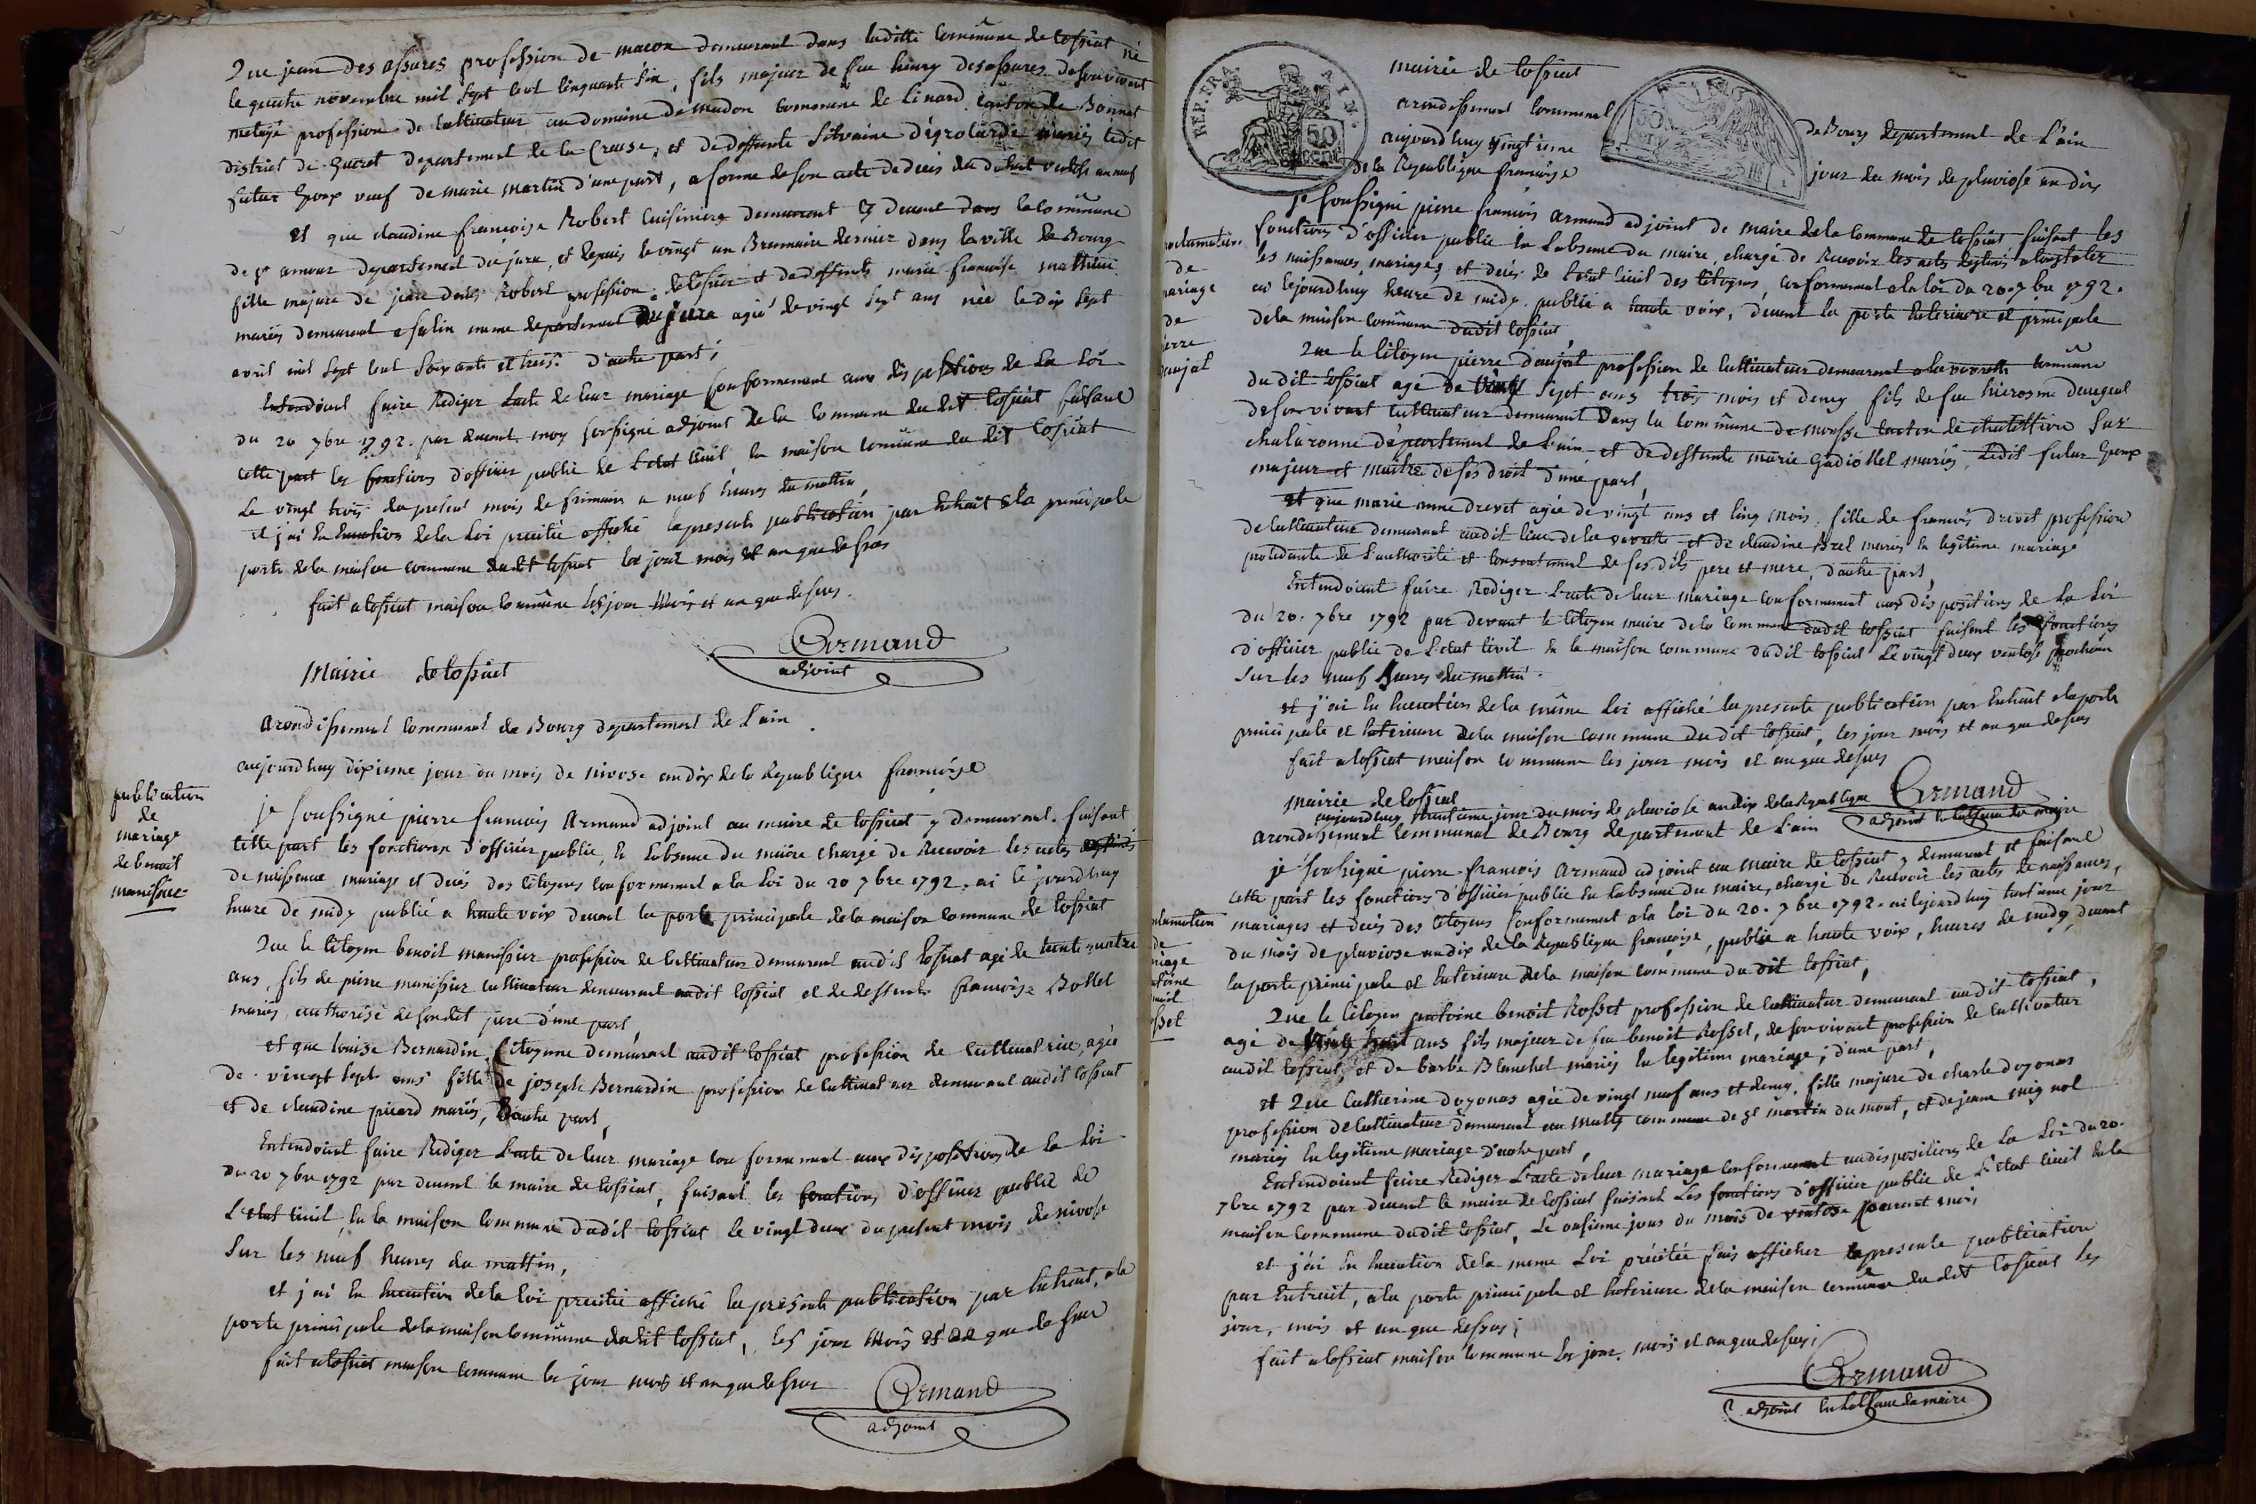 Que jean des assures profession de macon demeurant dans laditte commune de cossiat né
le quatre novembre mil sept cent cinquante six, fils majeur de feu henry desassures de son vivant
profession de cultivateur au domaine de madon commune de Linard canton de Bonnat
district de Gueret departement de la Creuse, et de deffunte Silvaine mariés ledit
futur Epoux veuf de marie martin d'une part, a forme de son acte de deces du ventose an neuf
et que claudine francoise Robert cuisiniere demeurant cy devant dans la commune
de st amour departement du jura, et depuis le vingt un Brumaire dernier dans la ville de Bourg
fille majeure de jean denis Robert profession de et de deffunte marie francoise mathieu
mariés demeurant a salin meme departement du jura agée de vingt sept ans née le dix sept
avril mil sept cent soixante et treize d'autre part;
Entendoient faire Rediger L'acte de leur mariage conformement aux dispositions de La Loi
du 20 7bre 1792. par devant moy soussigne adjoint de la commune du dit cossiat faisant
cette part les fonctions d'officier public de L'etat civil, en la maison commune du dit cossiat
Le vingt trois du present mois de frimaire a neuf heures du mattin,
et j'ai en execution de la Loi precitée affiché la presente publication par Extrait a La principale
porte de la maison commune dudit cossiat les jour mois et an que dessus
fait a cossiat maison commune les jour mois et an que dessus.
Armand
adjoint
Mairie de cossiat
arondissement communal de Bourg departement de L'ain
aujourdhuy dixieme jour du mois de nivose an dix de la Republique francoise
publication
de
mariage
de benoit
manissier
je soussigné pierre francois Armand adjoint au maire de cossiat y demeurant. faisant
cette part les fonctions d'officier public, en L'absence du maire chargé de Recevoir les actes
de naissance mariage et deces des citoyens conformement a la Loi du 20 7bre 1792, ai ce jourdhuy
heure de midy publié a haute voix devant la porte principale de la maison commune de cossiat
Que le citoyen benoit manissier profession de cultivateur demeurant audit cossiat agé de trente quatre
ans, fils de pierre manissier cultivateur demeurant audit cossiat et de deffunte francoise Bollet
mariés, authorisé de son dit pere d'une part,
et que louise Bernardin, Citoyenne demeurant audit cossiat profession de cultivatrice, agée
de vingt sept ans fille de joseph Bernardin profession de cultivateur demeurant audit cossiat
et de claudine picard mariés, d'autre part,
Entendoient faire Rediger L'acte de leur mariage conformement aux dispositions de la Loi
du 20 7bre 1792 par devant le maire de cossiat, faisant les fonctions d'officier public de
L'etat civil, en la maison commune dudit cossiat le vingt deux du present mois de nivose
Sur les neuf heures du mattin,
et j'ai en execution de la Loi precitée affiché la presente publication par Extrait, a la
porte principale de la maison commune dudit cossiat, les jour mois et an que dessus
fait a cossiat maison commune les jour mois et an que dessus
Armand
adjoint
REP. FRA.
AIN.
50
cent
mairie de cossiat
arondissement communal
de Bourg departement de L'ain
aujourdhuy vingtieme
jour du mois de pluviose an dix
de la Republique francoise
je soussigné pierre francois Armand adjoint de maire de la commune de cossiat faisant les
fonctions d'officier public en L'absence du maire, chargé de Recevoir les actes destinés a constater
les naissances, mariages, et deces de L'etat civil des citoyens, conformement a la Loi du 20. 7bre 1792.
ai cejourdhuy heure de midy publié a haute voix, devant La porte Exterieure et principale
de la maison commune dudit cossiat,
Que le Citoyen pierre profession de cultivateur demeurant a la vavrette commune
du dit cossiat agé de vingt sept ans trois mois et demy fils de feu hierosme
de son vivant cultivateur demeurant dans la commune de canton de chatillion sur
chalaronne departement de L'ain et de deffunte marie Gadiollet mariés, ledit futur Epoux
majeur et maitre de ses droit d'une part,
et que marie anne drevet agée de vingt ans et cinq mois, fille de francois drevet profession
de cultivateur demeurant audit lieu de la vavrette et de claudine mariés en legitime mariage
procedante de L'authorité et consentement de ses dits pere et mere, d'autre part,
Entendoient faire Rediger L'acte de leur mariage conformement aux dispositions de La Loi
du 20. 7bre 1792 par devant le Citoyen maire de la commune dudit cossiat faisant les fonctions
d'officier public de L'etat civil en la maison commune dudit cossiat Le vingt deux ventose prochain
Sur les neuf heures du mattin.
et j'ai en execution de la même Loi affiché la presente publication par Extrait a la porte
principale et Exterieure de la maison commune dudit cossiat, les jour mois et an que dessus
fait a cossiat maison commune les jour mois et an que dessus
Armand
adjoint en L'absence du maire
mairie de cossiat
aujourdhuy trentieme jour du mois de pluviose an dix de la Republique
arondissement communal de Bourg departement de L'ain
je soussigné pierre francois Armand adjoint au maire de cossiat y demeurant et faisant
cette part les fonctions d'officier public en L'absence du maire, chargé de Recevoir les actes de naissances,
mariages et deces des citoyens conformement a la Loi du 20. 7bre 1792. ai cejourdhuy trentieme jour
du mois de pluviose an dix de la Republique francoise, publié a haute voix, heures de midy, devant
la porte principale et Exterieure de la maison commune du dit cossiat,
Que le Citoyen antoine benoit Rosset profession de cultivateur demeurant audit cossiat,
agé de vingt huit ans fils majeur de feu benoit Rosset, de son vivant profession de cultivateur
audit cossiat, et de barbe Blanchet mariés en legitime mariage; d'une part,
et Que Catherine doyonas agée de vingt neuf ans et demy, fille majeure de charle doyonas
profession de cultivateur demeurant au commune de st martin du mont, et de jeanne mignot
mariés en legitime mariage d'autre part,
Entendoient faire Rediger L'acte de leur mariage conformement au dispositions de La Loi du 20.
7bre 1792 par devant le maire de cossiat faisant Les fonctions d'officier public de L'etat civil de la
maison commune dudit cossiat, Le onsieme jour du mois de ventose
et j'ai en execution de la meme Loi précitée fais afficher la presente publication
par Extrait, a la porte principale et Exterieure de la maison commune du dit cossiat les
jour, mois et an que dessus;
fait a cossiat maison commune les jour, mois et an que dessus;
Armand
adjoint en L'absence du maire